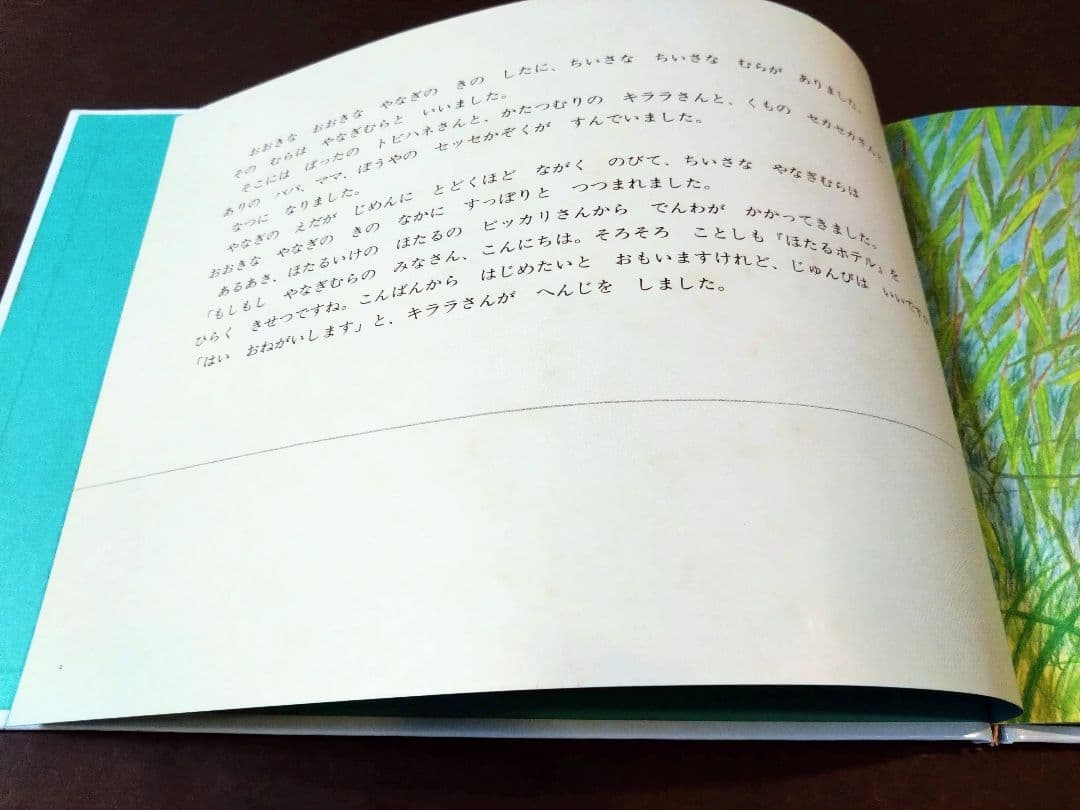 おおきな　おおきな　やなぎの　きの　したに、ちいさな　ちいさな　むらが　ありました。
その　むらは　やなぎむらと　いいました。
そこには　ばったの　トビハネさんと、かたつむりの　キララさんと、くもの　セカセカさんと
ありの　パパ、ママ、ぼうやの　セッセかぞくが　すんでいました。
なつに　なりました。
やなぎの　えだが　じめんに　とどくほど　ながく　のびて、ちいさな　やなぎむらは
おおきな　やなぎの　きの　なかに　すっぽりと　つつまれました。
あるあさ、ほたるいけの　ほたるの　ピッカリさんから　でんわが　かかってきました。
「もしもし　やなぎむらの　みなさん、こんにちは。そろそろ　ことしも『ほたるホテル』を
ひらく　きせつですね。こんばんから　はじめたいと　おもいますけれど、じゅんびは　いいです
「はい　おねがいします」と、キララさんが　へんじを　しました。